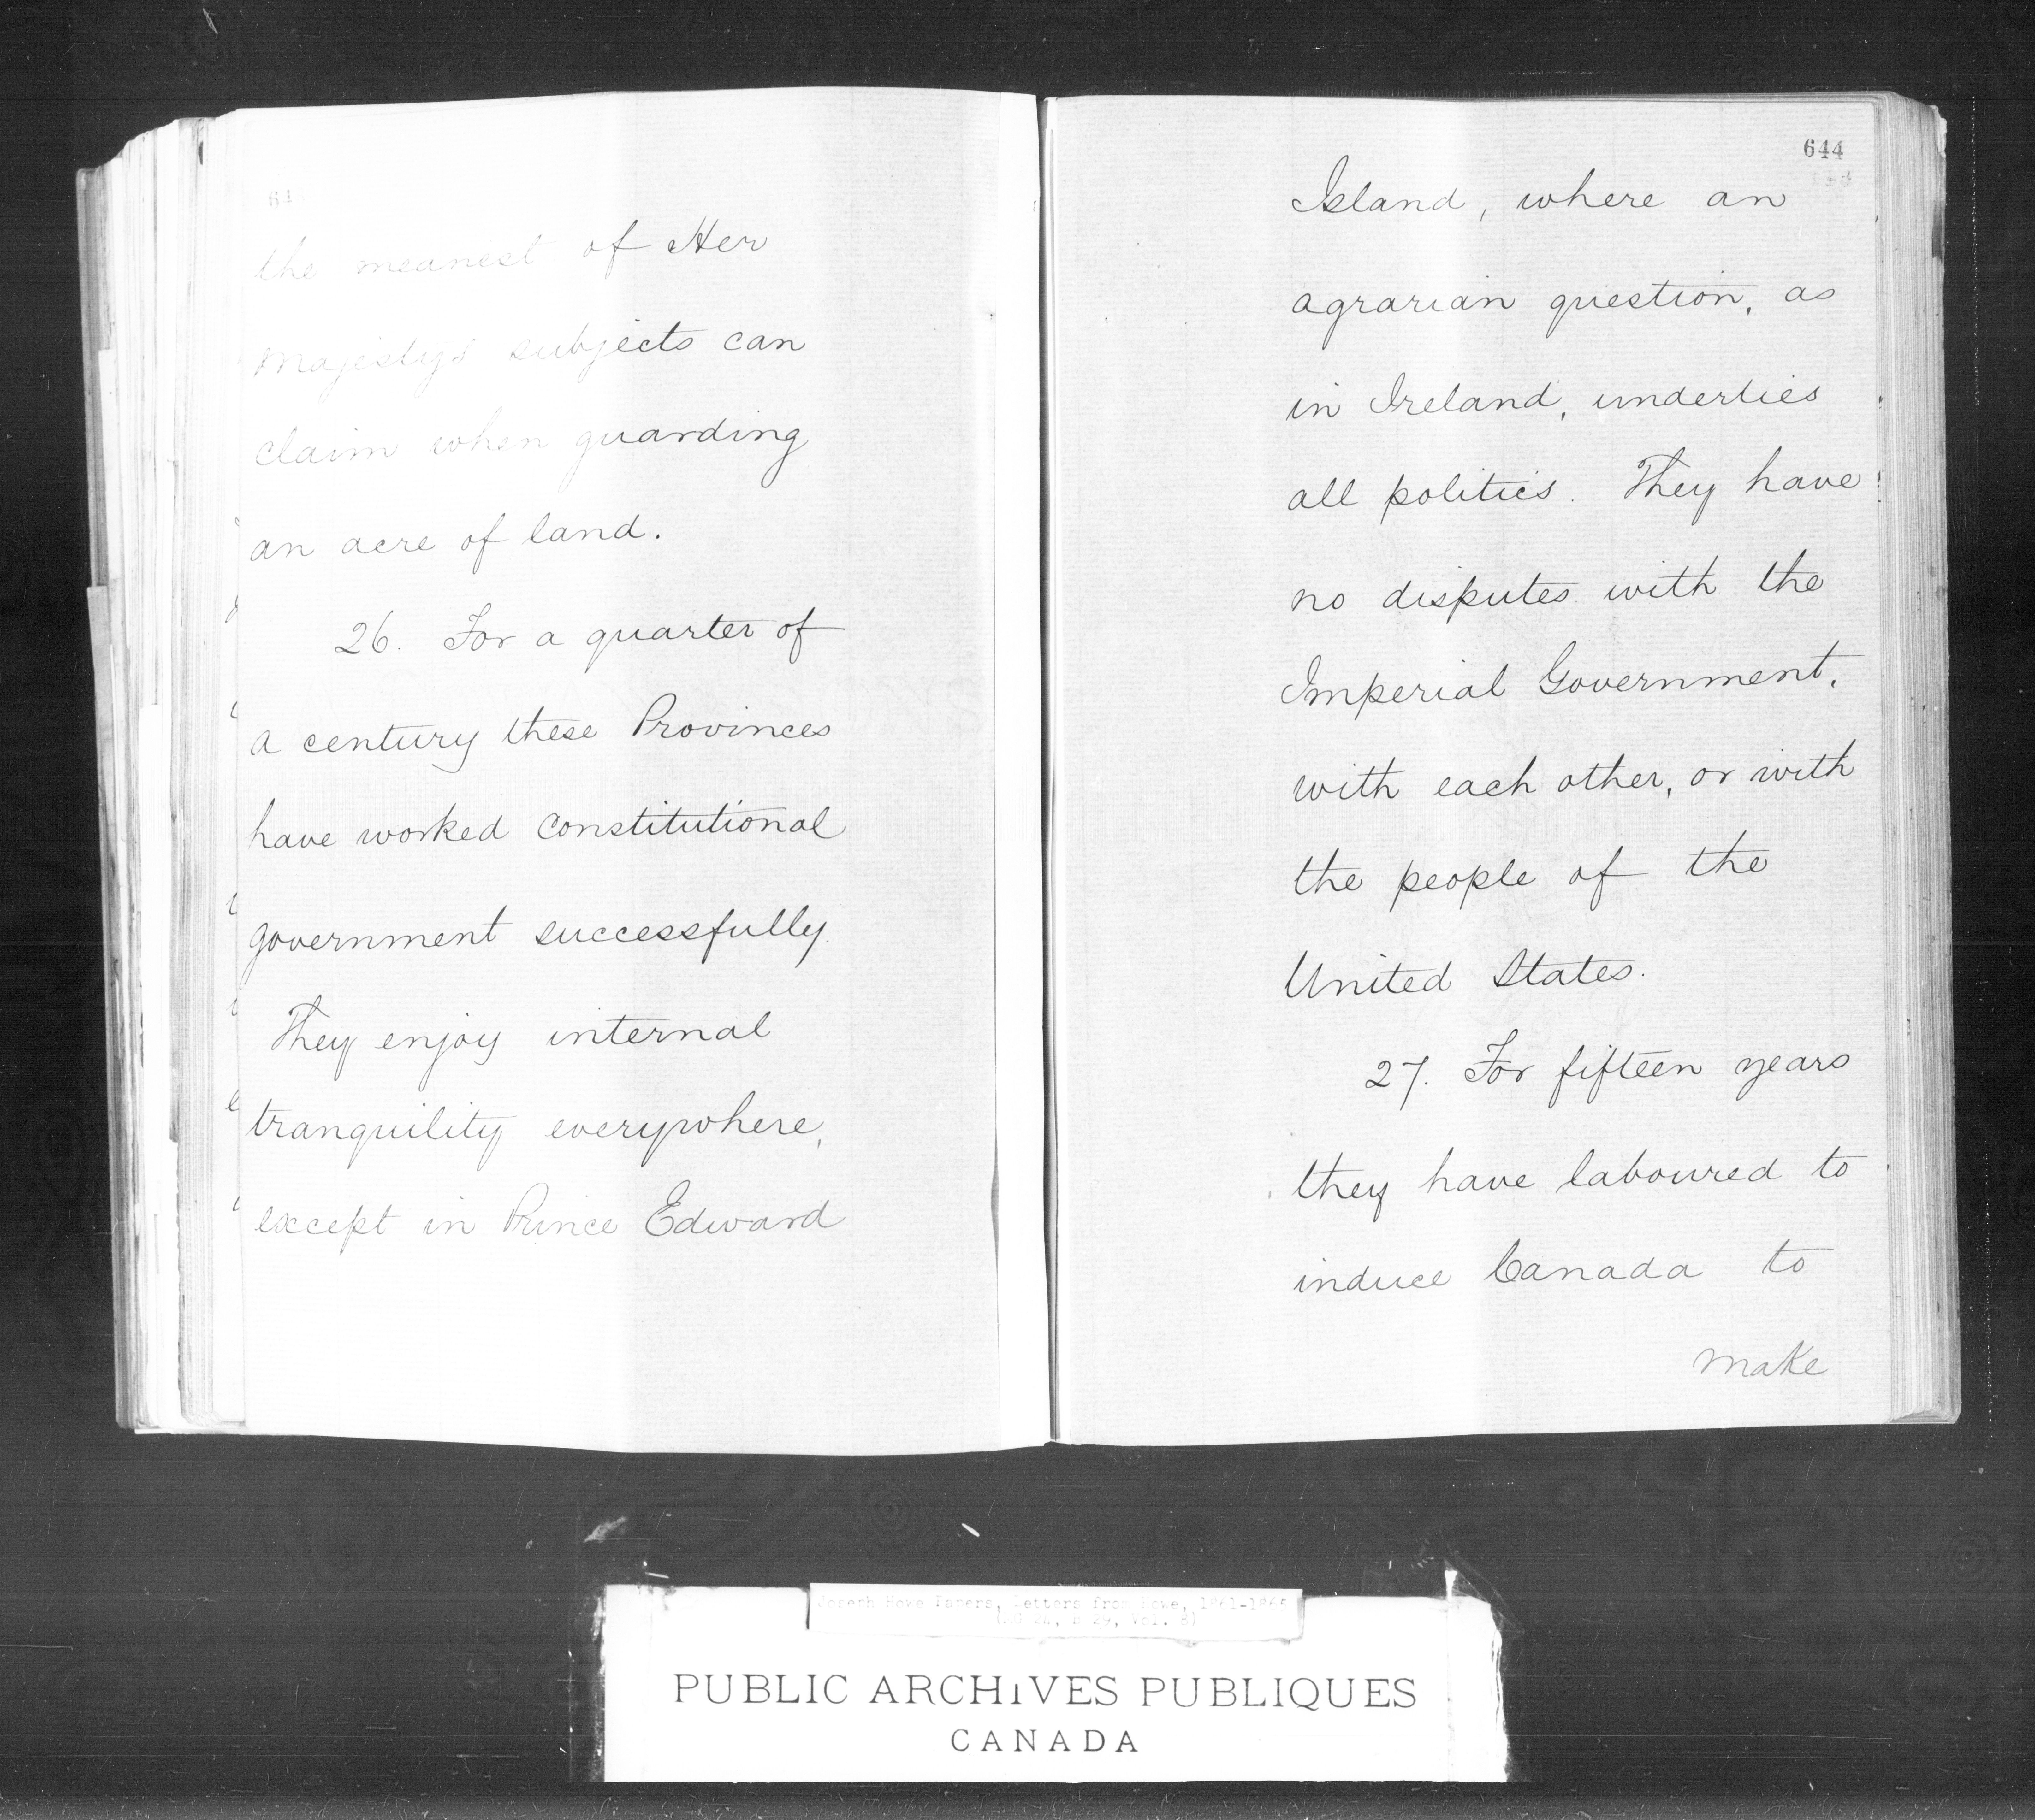 the meanest of Her
Majesty's subjects can
claim when guarding
an acre of land.
26. For a quarter of
a century these Provinces
have worked constitutional
government successfully.
They enjoy internal
tranquility everywhere,
except in Prince Edward
644
Island, where an
agrarian question, as
in Ireland, underlies
all politics. They have
no disputes with the
Imperial Government,
with each other, or with
the people of the
United States.
27. For fifteen years
they have laboured to
induce Canada to
make
Joseph Howe Papers, Letters from Howe, 1861-186
PUBLIC ARCHIVES PUBLIQUES
CANADA